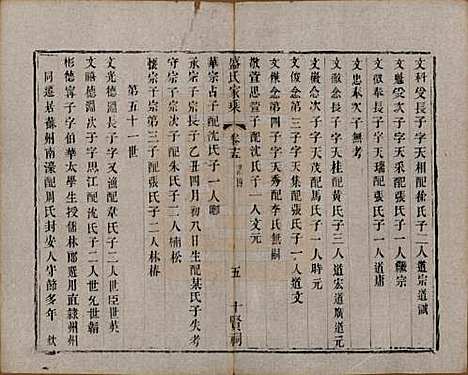 文科受長子字天相配徐氏子二人道宗道誠
文魁受次子字天采配張氏子一人繼宗
文煥奉長子字天瑞配張氏子一人道庸
文忠奉
文啟念長子字天桂配黃氏子三人道宏道廣道元
文徽念次子字天茂配馬氏子一人時元
文俊念第三子字天集配張氏子一人道文
文 念第四子字天秀配李氏無嗣
敬萱思萱子配沈氏子一人文元
盛氏家乘 卷十 五 十賢祠
華宗占子配沈氏子一人卿
承宗守宗長子乙丑四月初八日生配某氏子失考
守宗守宗次子配朱氏子二人楠松
懷宗守宗第三子配張氏子二人林椿
第五十一世
文光德淵長子字又漁配韋氏子二人世臣世英
文語德淵次子字思江配沈氏子二人世 世韜
彬德容子字伯華太學生授儒林郎選用直隸州州
同遷居蘇州南濠配周氏封安人守節多年 欽